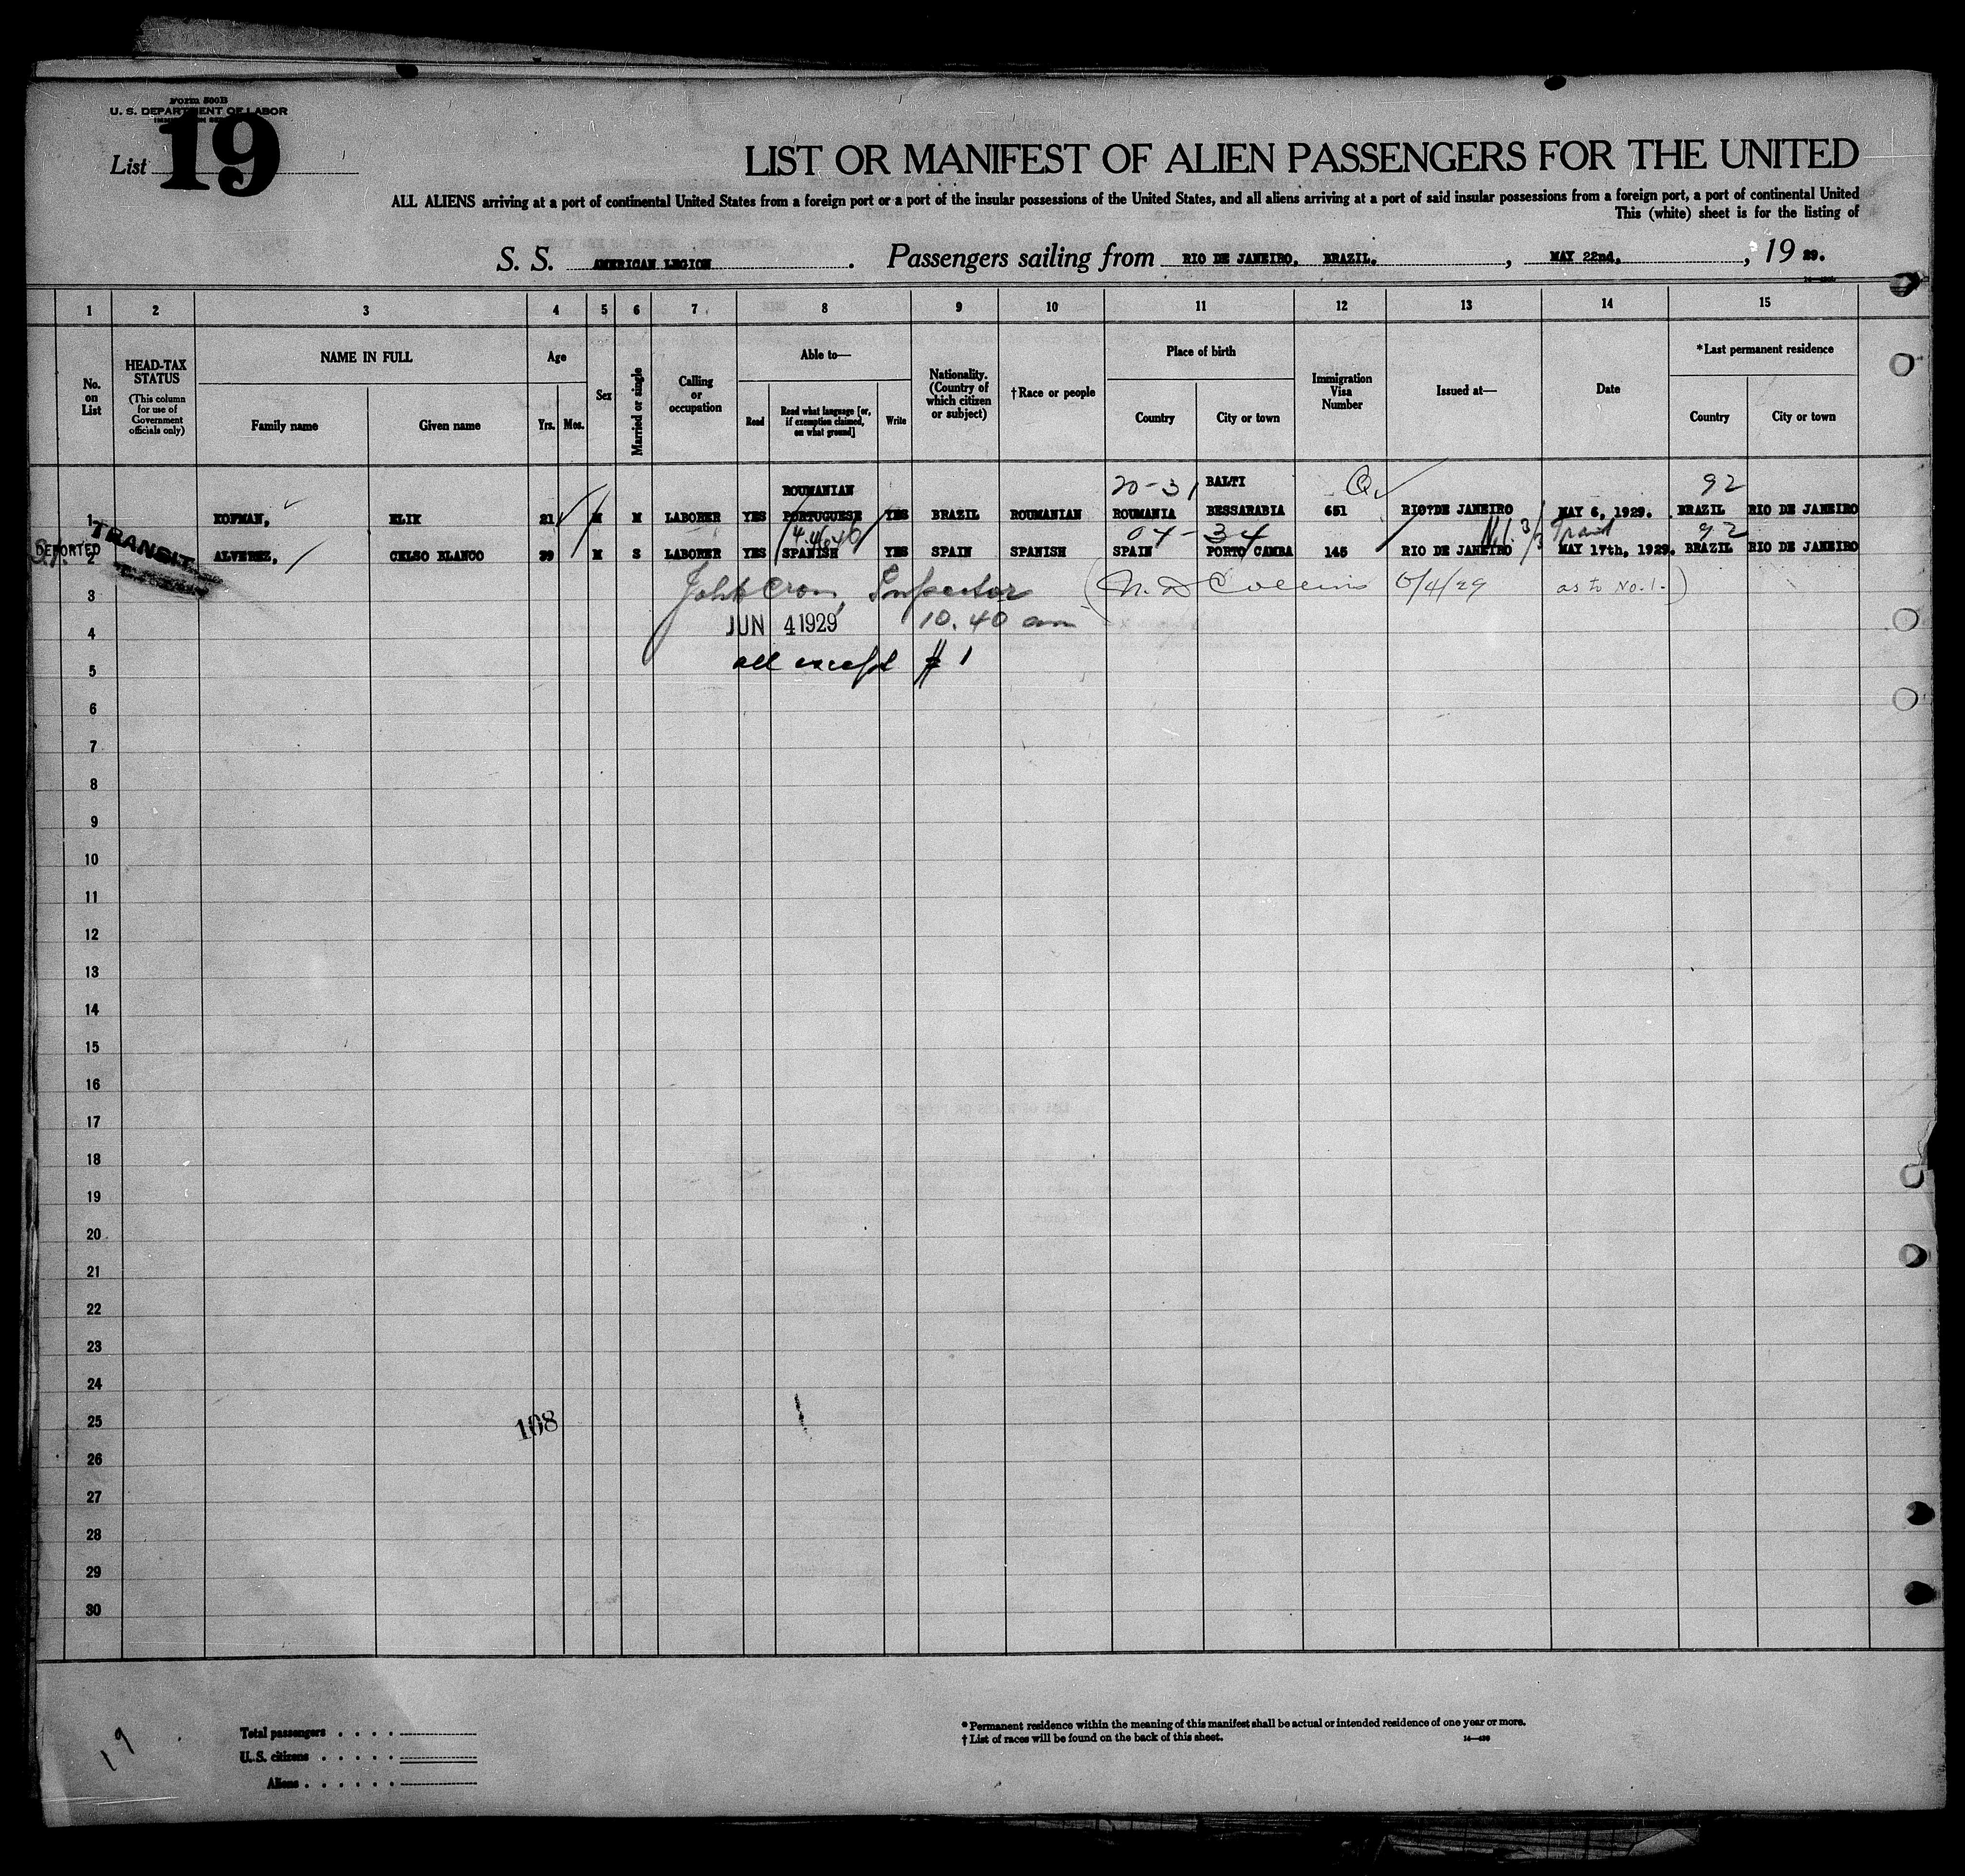 Form 500B
U. S. DEPARTMENT OF LABOR
List 19
LIST OR MANIFEST OF ALIEN PASSENGERS FOR THE UNITED
ALL ALIENS arriving at a port of continental United States from a foreign port or a port of the insular possessions of the United States, and all aliens arriving at a port of said insular possessions from a foreign port, a port of continental United
This (white) sheet is for the listing of
S. S. AMERICAN LEGION. Passengers sailing from RIO DE JANEIRO, BRAZIL., MAY 22nd., 19 29.
1 2 3 4 5 6 7 8 9 10 11 12 13 14 15
No. on List
HEAD-TAX STATUS
(This column for use of Government officials only)
NAME IN FULL
Family name Given name
Age
Yrs. Mos.
Sex
Married or single
Calling or occupation
Able to—
Read Read what language [or, if exemption claimed, on what ground] Write
Nationality. (Country of which citizen or subject)
†Race or people
Place of birth
Country City or town
Immigration Visa Number
Issued at—
Date
*Last permanent residence
Country City or town
ROUMANIAN 20-31 BALTI Q 92
1 KOFMAN, ELIK 21 M M LABORER YES PORTUGUESE YES BRAZIL ROUMANIAN ROUMANIA BESSARABIA 651 RIO?DE JANEIRO MAY 6, 1929. BRAZIL RIO DE JANEIRO
TRANSIT 04-34 Transit 92
DEPORTED 2 ALVEREZ, CELSO BLANCO 39 M S LABORER YES SPANISH YES SPAIN SPANISH SPAIN PORTO CAMBA 145 RIO DE JANEIRO MAY 17th, 1929. BRAZIL RIO DE JANEIRO
3 Inspector (N. D Collins 6/4/29 as to No. 1.)
4 JUN 4 1929 10.40 am
5 all except # 1
6
7
8
9
10
11
12
13
14
15
16
17
18
19
20
21
22
23
24
25 108
26
27
28
29
30
19
Total passengers . . . .
U.S. citizens . . . . .
Aliens . . . . . .
* Permanent residence within the meaning of this manifest shall be actual or intended residence of one year or more.
† List of races will be found on the back of this sheet.